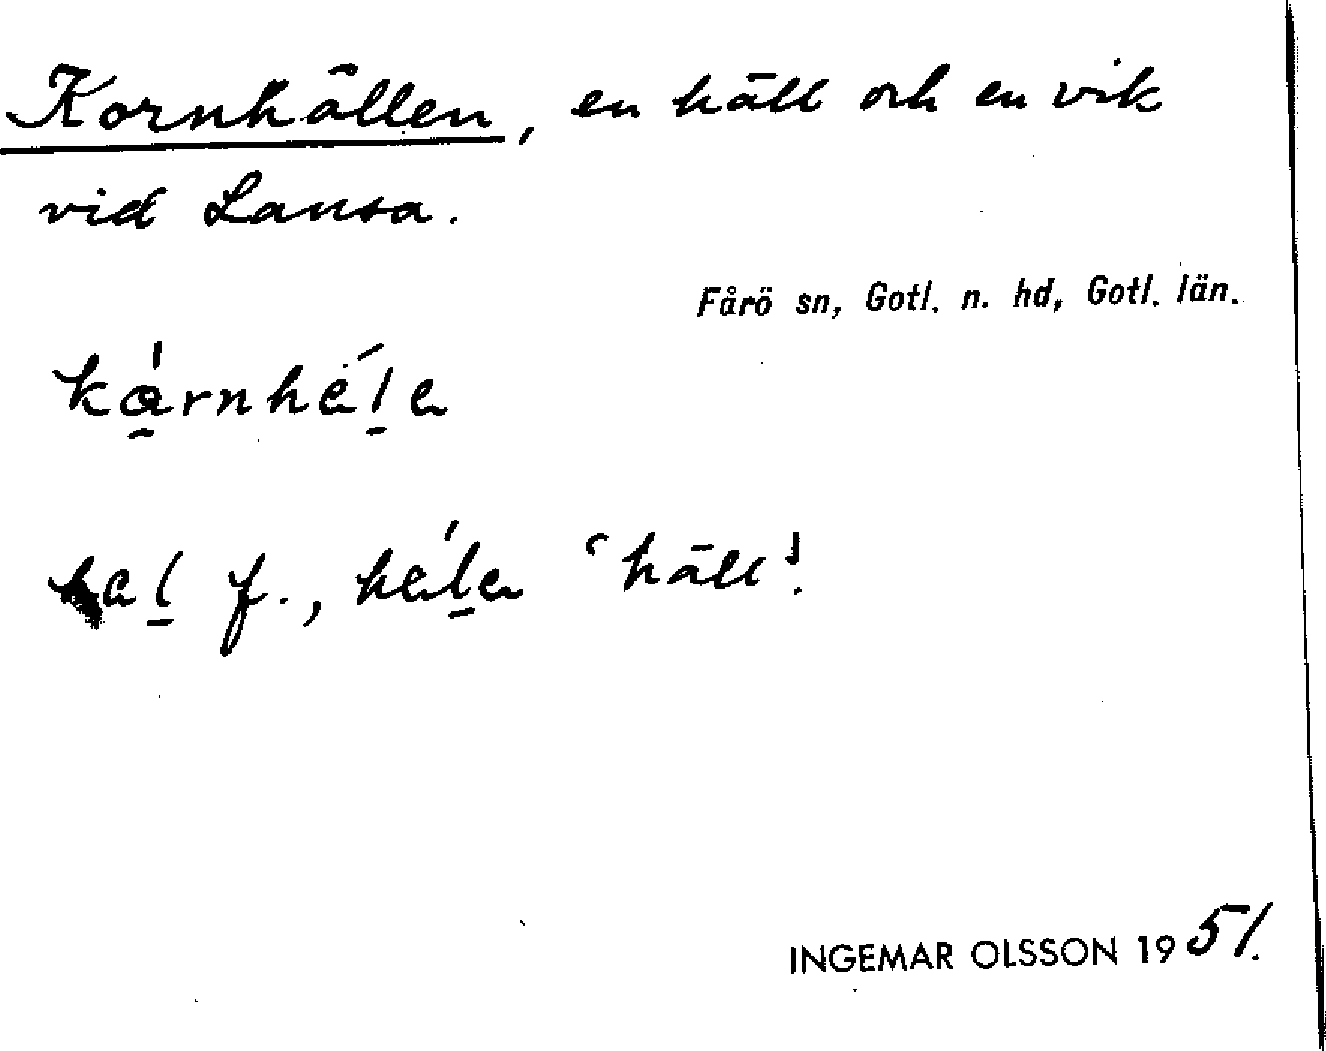 Kornhällen, en häll och en vik
vid Lansa.
Fårö sn, Gotl. n. hd, Gotl. län.
f., 'häll'.
INGEMAR OLSSON 1951.